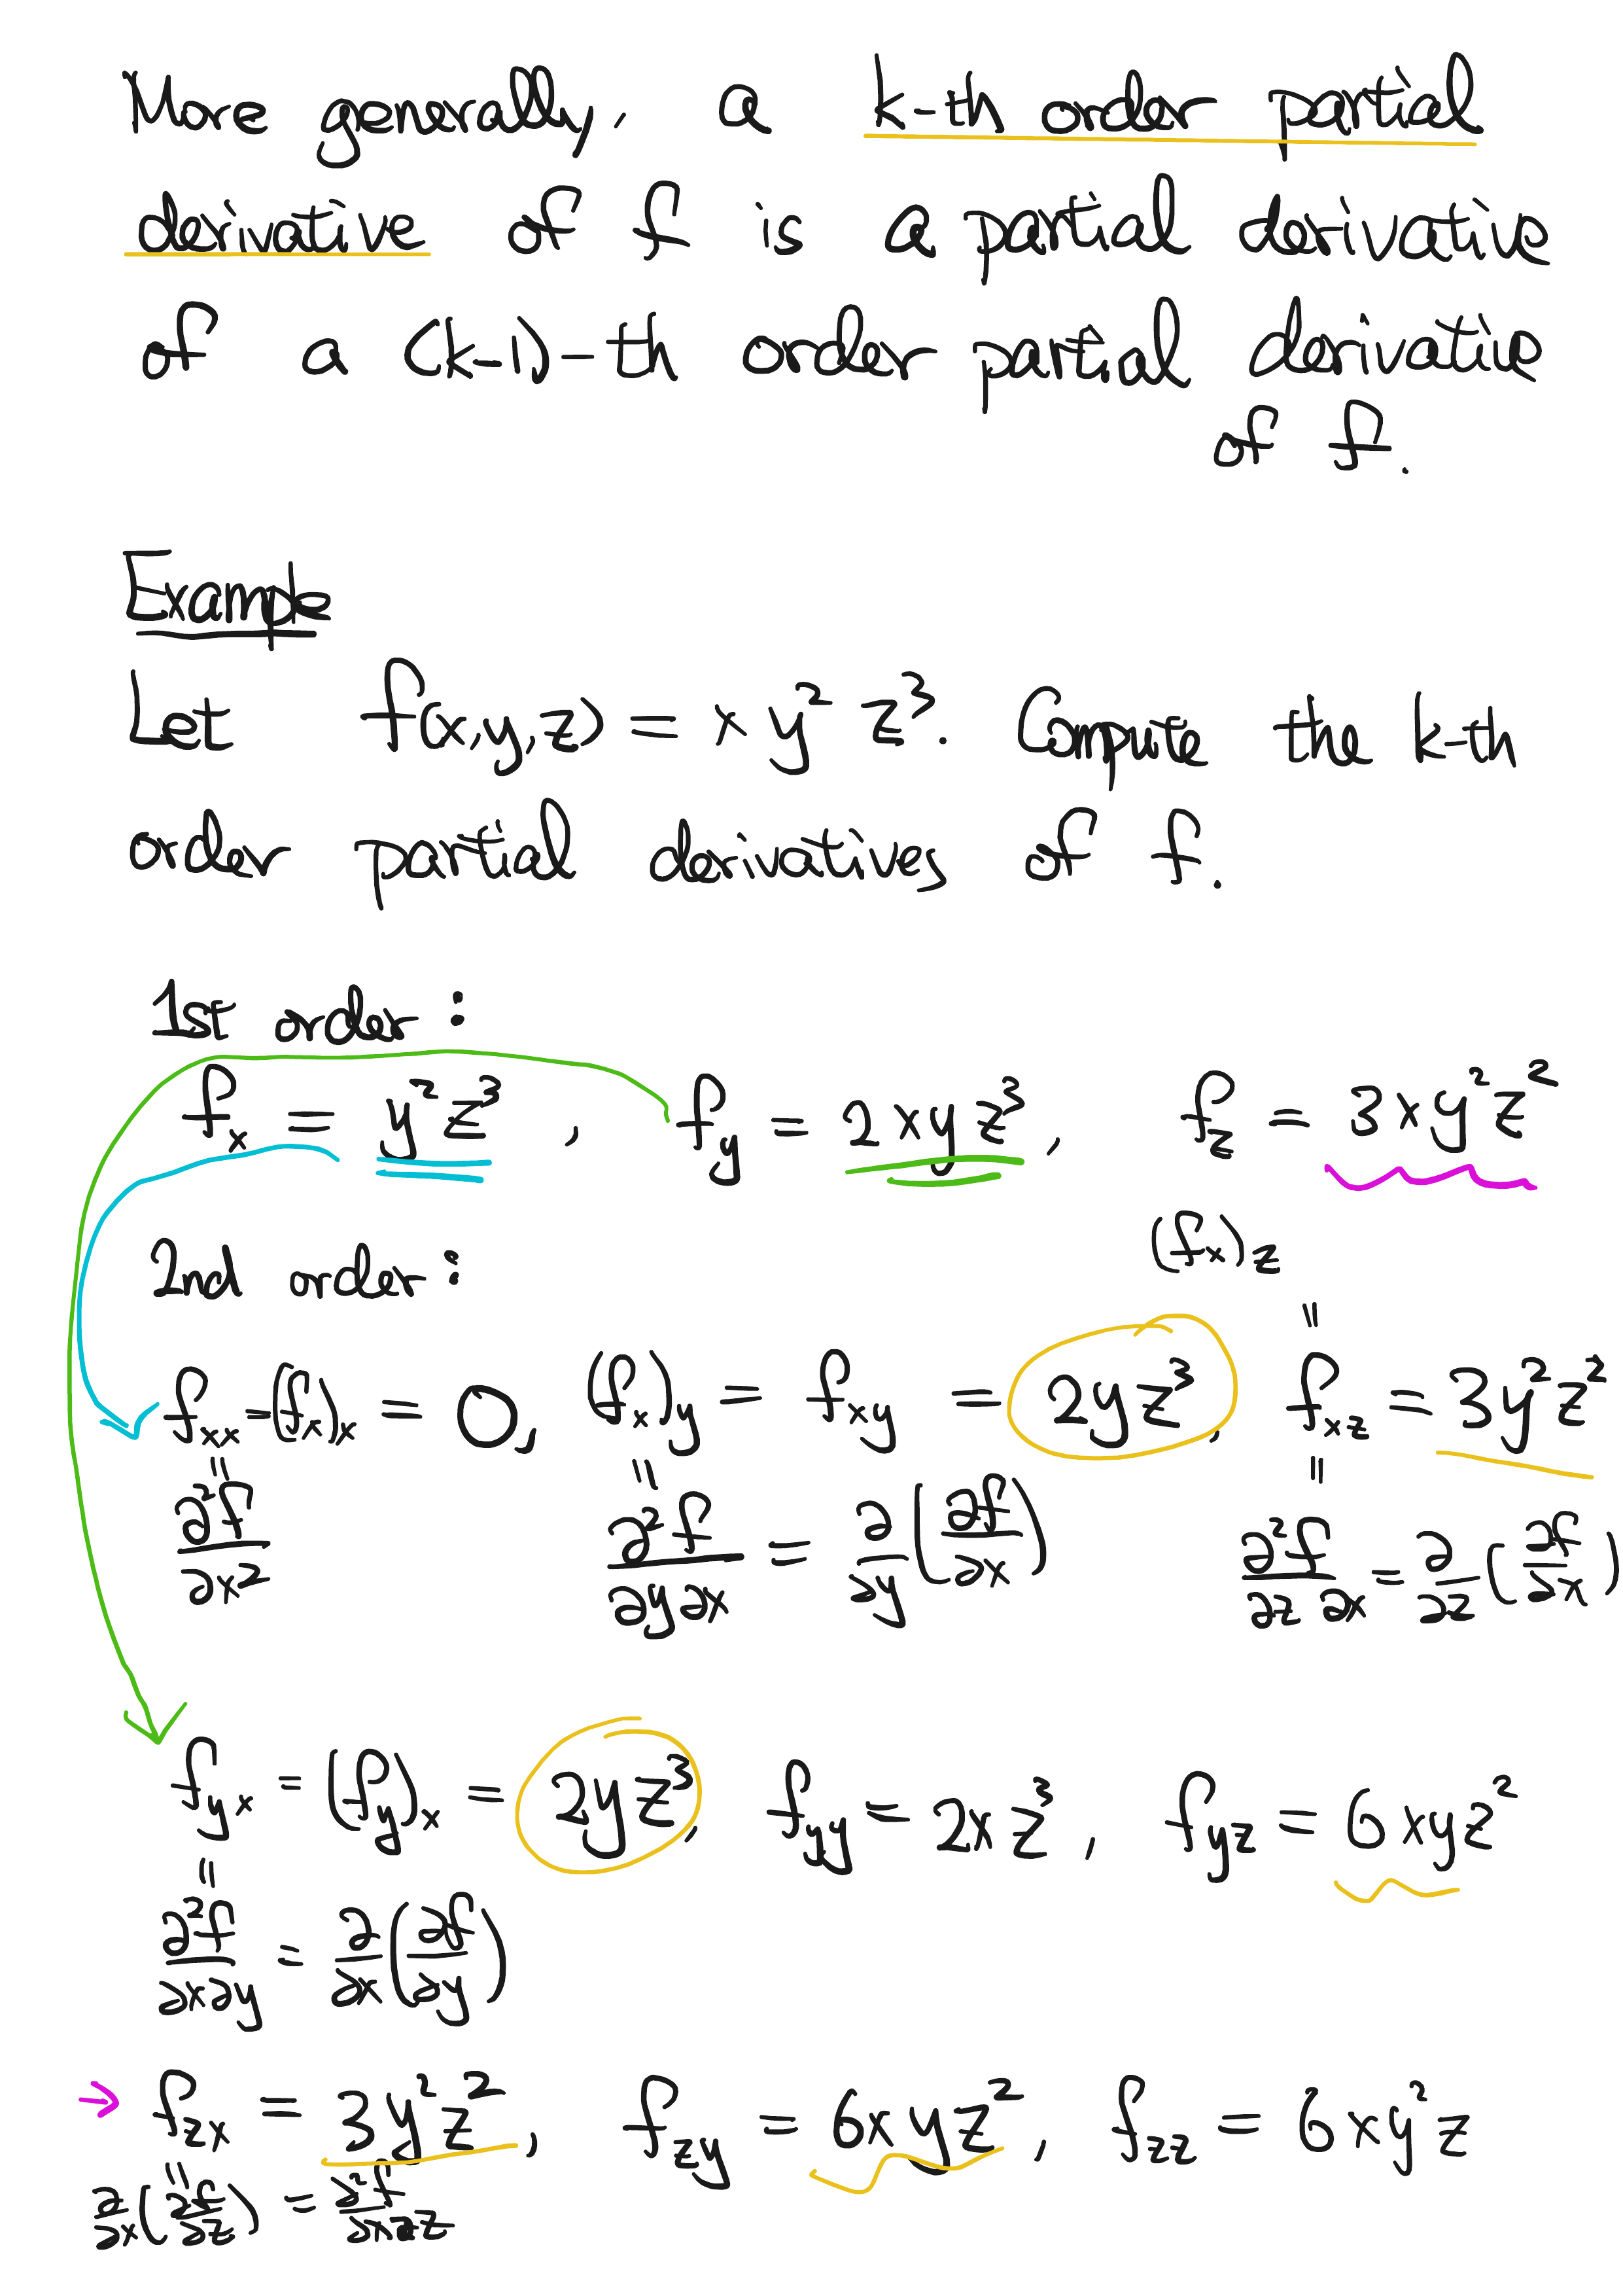 More generally, a k-th order partial
derivative of f is a partial derivative
of a (k-1)-th order partial derivative
of f.
Example
Let f(x,y,z) = x y² z³. Compute the k-th
order partial derivatives of f.
1st order:
f_x = y²z³, f_y = 2xyz³, f_z = 3xy²z²
2nd order:
(f_x)_z
=
f_xx = (f_x)_x = 0, (f_x)_y = f_xy = 2yz³, f_xz = 3y²z²
= = =
∂²f/∂x² ∂²f/∂y∂x = ∂/∂y(∂f/∂x) ∂²f/∂z∂x = ∂/∂z(∂f/∂x)
f_yx = (f_y)_x = 2yz³, f_yy = 2xz³, f_yz = 6xyz²
=
∂²f/∂x∂y = ∂/∂x(∂f/∂y)
→ f_zx = 3y²z², f_zy = 6xyz², f_zz = 6xy²z
=
∂/∂x(∂f/∂z) = ∂²f/∂x∂z